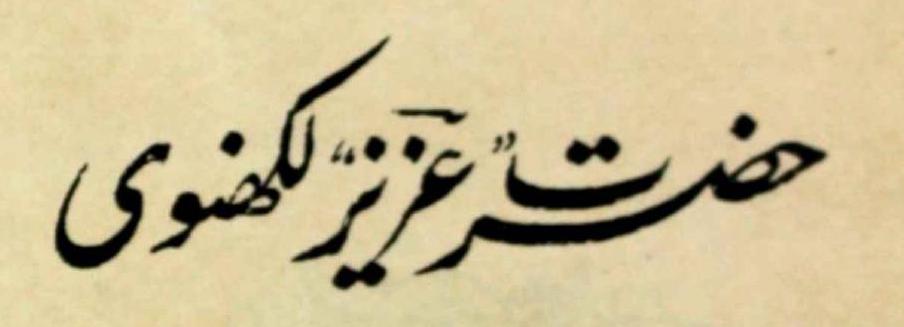 حضرت ”عزیز“ لکھنوی